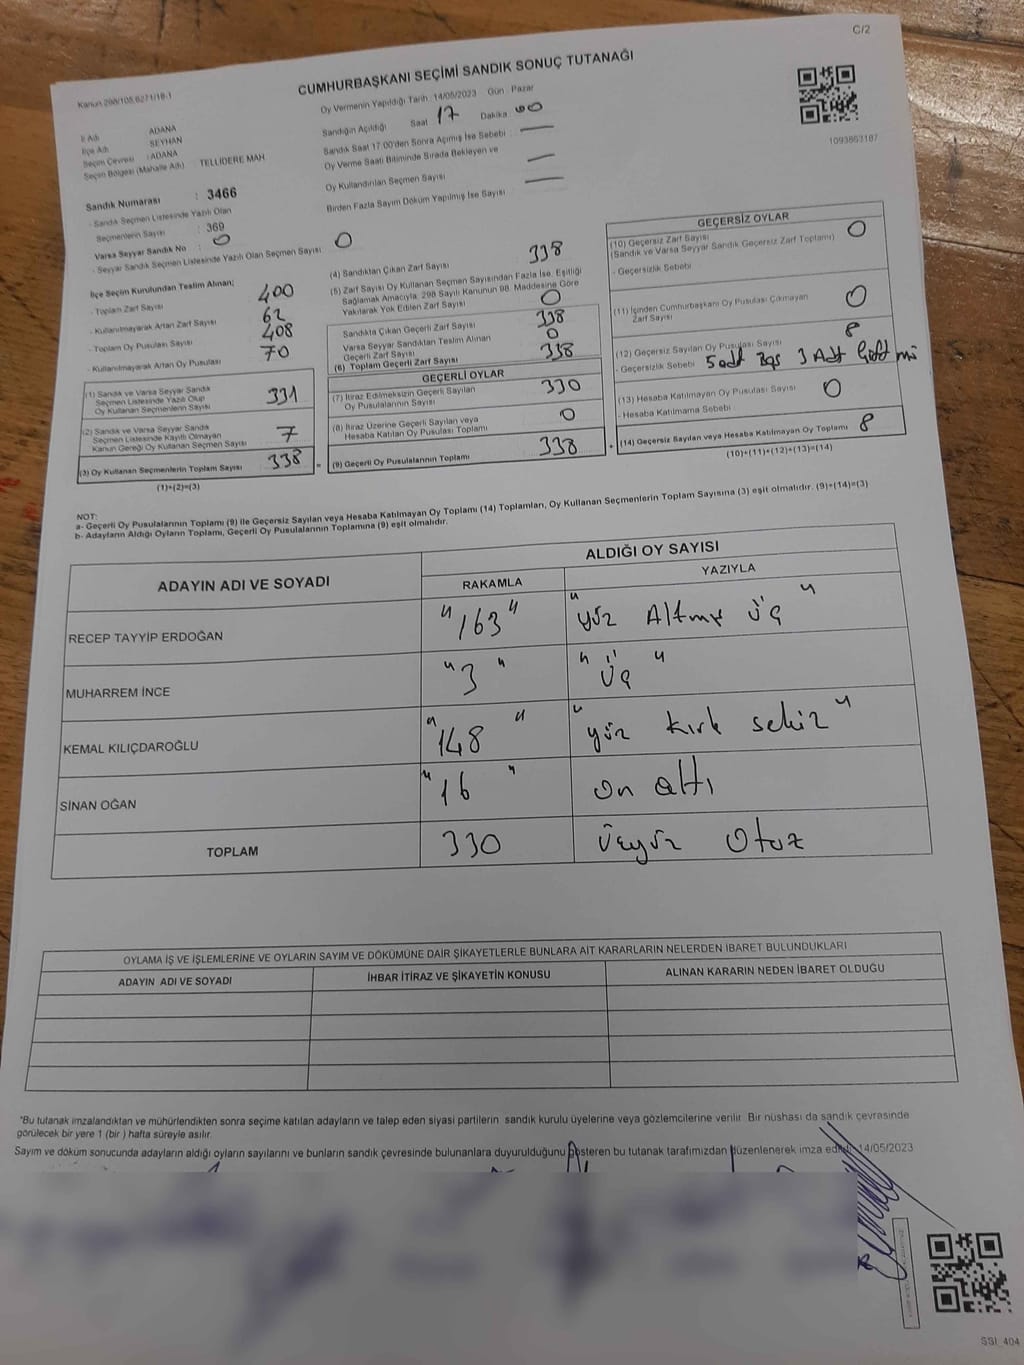 C/2
CUMHURBAŞKANI SEÇİMİ SANDIK SONUÇ TUTANAĞI
Kanun 298/105,6271/18-1
Oy Vermenin Yapıldığı Tarih :14/05/2023 Gün : Pazar
İl Adı : ADANA
İlçe Adı : SEYHAN
Seçim Çevresi : ADANA
Seçim Bölgesi (Mahalle Adı) TELLİDERE MAH
Sandık Numarası : 3466
- Sandık Seçmen Listesinde Yazılı Olan
Seçmenlerin Sayısı : 369
Varsa Seyyar Sandık No : 0
- Seyyar Sandık Seçmen Listesinde Yazılı Olan Seçmen Sayısı : 0
Sandığın Açıldığı Saat 17 Dakika 00
Sandık Saat 17:00'den Sonra Açılmış İse Sebebi : —
Oy Verme Saati Bitiminde Sırada Bekleyen ve
Oy Kullandırılan Seçmen Sayısı —
Birden Fazla Sayım Döküm Yapılmış İse Sayısı —
1093863187
İlçe Seçim Kurulundan Teslim Alınan;
- Toplam Zarf Sayısı 400
- Kullanılmayarak Artan Zarf Sayısı 62
- Toplam Oy Pusulası Sayısı 408
- Kullanılmayarak Artan Oy Pusulası 70
(1) Sandık ve Varsa Seyyar Sandık
Seçmen Listesinde Yazılı Olup
Oy Kullanan Seçmenlerin Sayısı 331
(2) Sandık ve Varsa Seyyar Sandık
Seçmen Listesinde Kayıtlı Olmayan
Kanun Gereği Oy Kullanan Seçmen Sayısı 7
(3) Oy Kullanan Seçmenlerin Toplam Sayısı 338 =
(1)+(2)=(3)
(4) Sandıktan Çıkan Zarf Sayısı 338
(5) Zarf Sayısı Oy Kullanan Seçmen Sayısından Fazla İse, Eşitliği
Sağlamak Amacıyla, 298 Sayılı Kanunun 98. Maddesine Göre
Yakılarak Yok Edilen Zarf Sayısı 0
Sandıkta Çıkan Geçerli Zarf Sayısı 338
Varsa Seyyar Sandıktan Teslim Alınan
Geçerli Zarf Sayısı 0
(6) Toplam Geçerli Zarf Sayısı 338
GEÇERLİ OYLAR
(7) İtiraz Edilmeksizin Geçerli Sayılan
Oy Pusulalarının Sayısı 330
(8) İtiraz Üzerine Geçerli Sayılan veya
Hesaba Katılan Oy Pusulası Toplamı 0
(9) Geçerli Oy Pusulalarının Toplamı 338 +
GEÇERSİZ OYLAR
(10) Geçersiz Zarf Sayısı 0
(Sandık ve Varsa Seyyar Sandık Geçersiz Zarf Toplamı)
- Geçersizlik Sebebi
(11) İçinden Cumhurbaşkanı Oy Pusulası Çıkmayan
Zarf Sayısı 0
(12) Geçersiz Sayılan Oy Pusulası Sayısı 8
- Geçersizlik Sebebi 5 adt Boş 3 Adt
(13) Hesaba Katılmayan Oy Pusulası Sayısı 0
- Hesaba Katılmama Sebebi
(14) Geçersiz Sayılan veya Hesaba Katılmayan Oy Toplamı 8
(10)+(11)+(12)+(13)=(14)
NOT:
a- Geçerli Oy Pusulalarının Toplamı (9) ile Geçersiz Sayılan veya Hesaba Katılmayan Oy Toplamı (14) Toplamları, Oy Kullanan Seçmenlerin Toplam Sayısına (3) eşit olmalıdır. (9)+(14)=(3)
b- Adayların Aldığı Oyların Toplamı, Geçerli Oy Pusulalarının Toplamına (9) eşit olmalıdır.
ADAYIN ADI VE SOYADI ALDIĞI OY SAYISI
RAKAMLA YAZIYLA
RECEP TAYYİP ERDOĞAN "163" "yüz Altmış üç"
MUHARREM İNCE "3" "üç"
KEMAL KILIÇDAROĞLU "148" "yüz kırk sekiz"
SİNAN OĞAN "16" on altı
TOPLAM 330 üçyüz Otuz
OYLAMA İŞ VE İŞLEMLERİNE VE OYLARIN SAYIM VE DÖKÜMÜNE DAİR ŞİKAYETLERLE BUNLARA AİT KARARLARIN NELERDEN İBARET BULUNDUKLARI
ADAYIN ADI VE SOYADI İHBAR İTİRAZ VE ŞİKAYETİN KONUSU ALINAN KARARIN NEDEN İBARET OLDUĞU
*Bu tutanak imzalandıktan ve mühürlendikten sonra seçime katılan adayların ve talep eden siyasi partilerin sandık kurulu üyelerine veya gözlemcilerine verilir. Bir nüshası da sandık çevresinde
görülecek bir yere 1 (bir ) hafta süreyle asılır.
Sayım ve döküm sonucunda adayların aldığı oyların sayılarını ve bunların sandık çevresinde bulunanlara duyurulduğunu gösteren bu tutanak tarafımızdan düzenlenerek imza edildi. 14/05/2023
SSI: 404